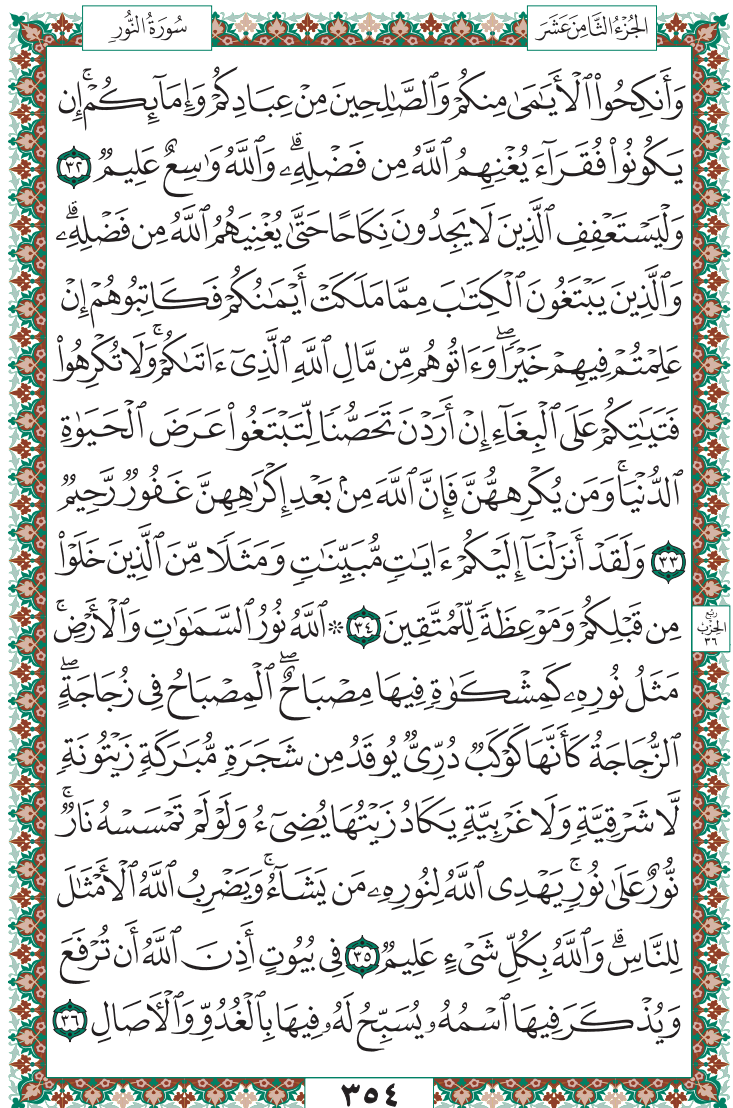 الجُزْءُ الثَّامِنَ عَشَرَ
سُورَةُ النُّور
وَأَنكِحُوا۟ ٱلْأَيَـٰمَىٰ مِنكُمْ وَٱلصَّـٰلِحِينَ مِنْ عِبَادِكُمْ وَإِمَآئِكُمْ ۚ إِن
يَكُونُوا۟ فُقَرَآءَ يُغْنِهِمُ ٱللَّهُ مِن فَضْلِهِۦ ۗ وَٱللَّهُ وَٰسِعٌ عَلِيمٌ ٣٢
وَلْيَسْتَعْفِفِ ٱلَّذِينَ لَا يَجِدُونَ نِكَاحًا حَتَّىٰ يُغْنِيَهُمُ ٱللَّهُ مِن فَضْلِهِۦ ۗ
وَٱلَّذِينَ يَبْتَغُونَ ٱلْكِتَـٰبَ مِمَّا مَلَكَتْ أَيْمَـٰنُكُمْ فَكَاتِبُوهُمْ إِنْ
عَلِمْتُمْ فِيهِمْ خَيْرًا ۖ وَءَاتُوهُم مِّن مَّالِ ٱللَّهِ ٱلَّذِىٓ ءَاتَىٰكُمْ ۚ وَلَا تُكْرِهُوا۟
فَتَيَـٰتِكُمْ عَلَى ٱلْبِغَآءِ إِنْ أَرَدْنَ تَحَصُّنًا لِّتَبْتَغُوا۟ عَرَضَ ٱلْحَيَوٰةِ
ٱلدُّنْيَا ۚ وَمَن يُكْرِههُّنَّ فَإِنَّ ٱللَّهَ مِنۢ بَعْدِ إِكْرَٰهِهِنَّ غَفُورٌ رَّحِيمٌ
٣٣ وَلَقَدْ أَنزَلْنَآ إِلَيْكُمْ ءَايَـٰتٍ مُّبَيِّنَـٰتٍ وَمَثَلًا مِّنَ ٱلَّذِينَ خَلَوْا۟
مِن قَبْلِكُمْ وَمَوْعِظَةً لِّلْمُتَّقِينَ ٣٤ ۞ ٱللَّهُ نُورُ ٱلسَّمَـٰوَٰتِ وَٱلْأَرْضِ ۚ
مَثَلُ نُورِهِۦ كَمِشْكَوٰةٍ فِيهَا مِصْبَاحٌ ۖ ٱلْمِصْبَاحُ فِى زُجَاجَةٍ ۖ
ٱلزُّجَاجَةُ كَأَنَّهَا كَوْكَبٌ دُرِّىٌّ يُوقَدُ مِن شَجَرَةٍ مُّبَـٰرَكَةٍ زَيْتُونَةٍ
لَّا شَرْقِيَّةٍ وَلَا غَرْبِيَّةٍ يَكَادُ زَيْتُهَا يُضِىٓءُ وَلَوْ لَمْ تَمْسَسْهُ نَارٌ ۚ
نُّورٌ عَلَىٰ نُورٍ ۗ يَهْدِى ٱللَّهُ لِنُورِهِۦ مَن يَشَآءُ ۚ وَيَضْرِبُ ٱللَّهُ ٱلْأَمْثَـٰلَ
لِلنَّاسِ ۗ وَٱللَّهُ بِكُلِّ شَىْءٍ عَلِيمٌ ٣٥ فِى بُيُوتٍ أَذِنَ ٱللَّهُ أَن تُرْفَعَ
وَيُذْكَرَ فِيهَا ٱسْمُهُۥ يُسَبِّحُ لَهُۥ فِيهَا بِٱلْغُدُوِّ وَٱلْـَٔاصَالِ ٣٦
ربع
الحزب
٣٦
٣٥٤